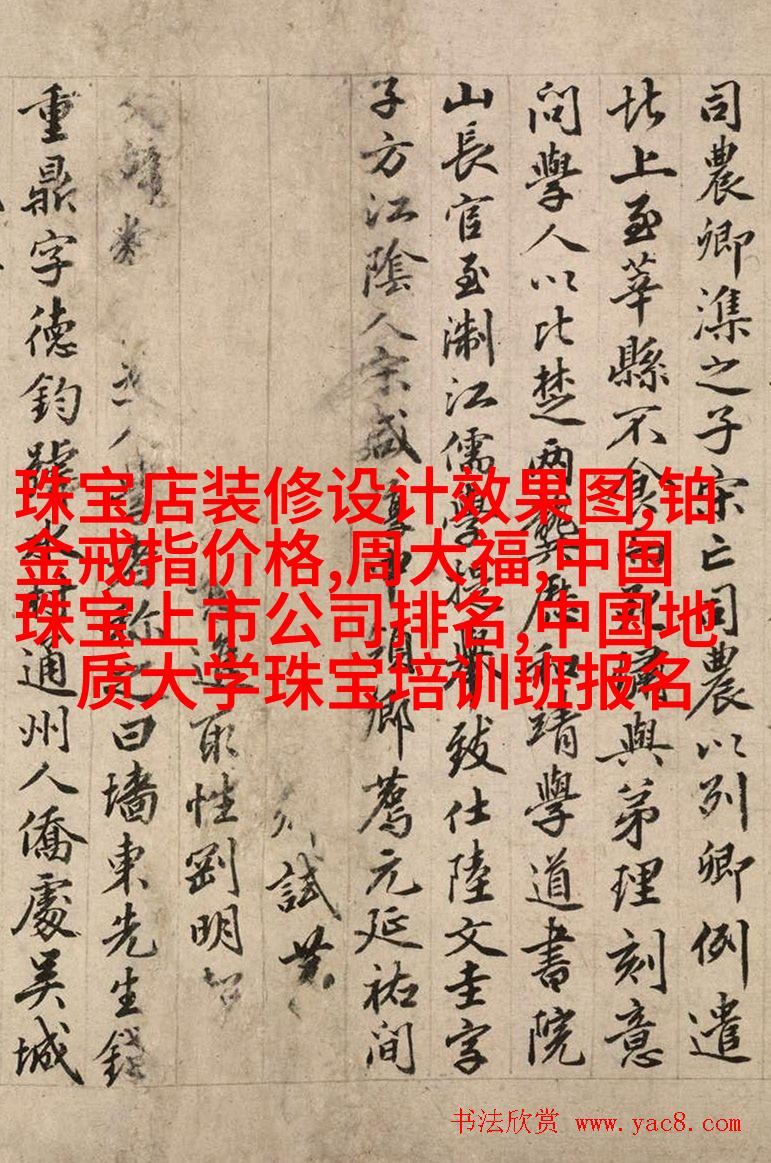 司農卿潗之子宋亡司農以列卿例遣
北上至莘縣不食與弟理刻意
問學人以比楚兩龔歷和靖學道書院
山長官至淛江儒學提舉致仕陸文圭字
子方江陰人宋咸淳中領鄉薦元延祐間
試
進取性剛明
人稱之曰墻東先生錢
重鼎字德鈞號水村通州人僑處吳城
珠宝店装修设计效果图,铂
金戒指价格,周大福,中国
珠宝上市公司排名,中国地
质大学珠宝培训班报名
书法欣赏 www.yac8.com